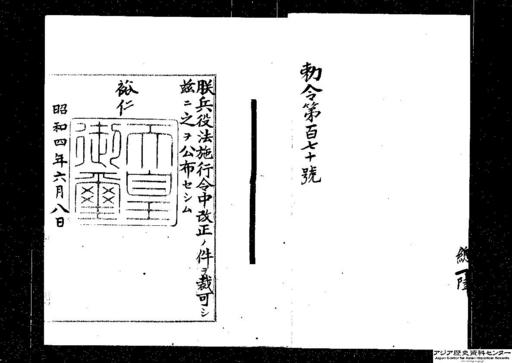 勅令第百七十號
朕兵役法施行令中改正ノ件ヲ裁可シ
玆ニ之ヲ公布セシム
裕仁
天皇御璽
昭和四年六月八日
アジア歴史資料センター
Japan Center for Asian Historical Records